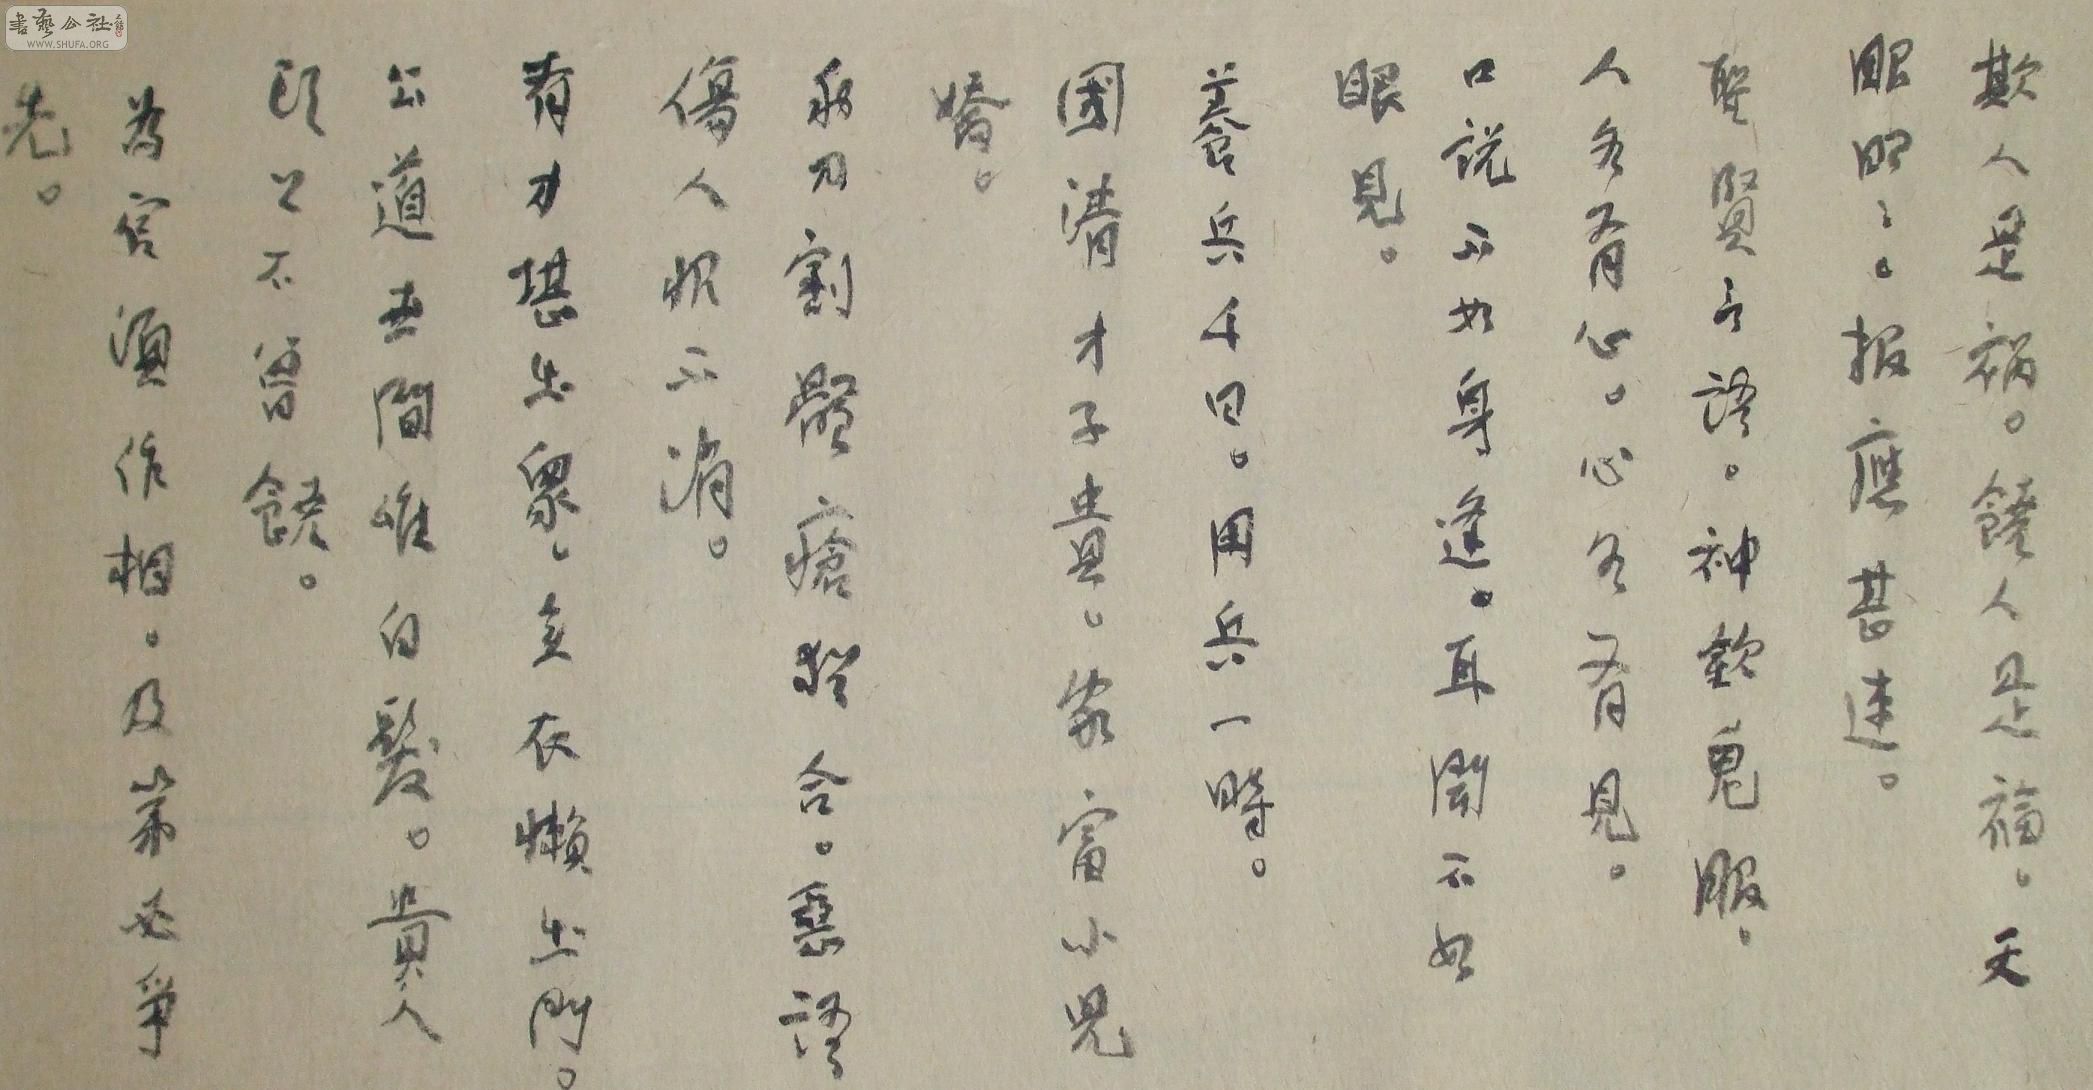 書藝公社
WWW.SHUFA.ORG
欺人是禍。饒人是福。天
眼昭〻。報應甚速。
聖賢言語。神欽鬼服。
人各有心。心各有見。
口說不如身逢。耳聞不如
眼見。
養兵千日。用兵一時。
國清才子貴。家富小兒
嬌。
利刀割體瘡猶合。惡語
傷人恨不消。
有才堪出眾。無衣懶出門。
公道世間唯白髮。貴人
頭上不曾饒。
為官須作相。及第必爭
先。